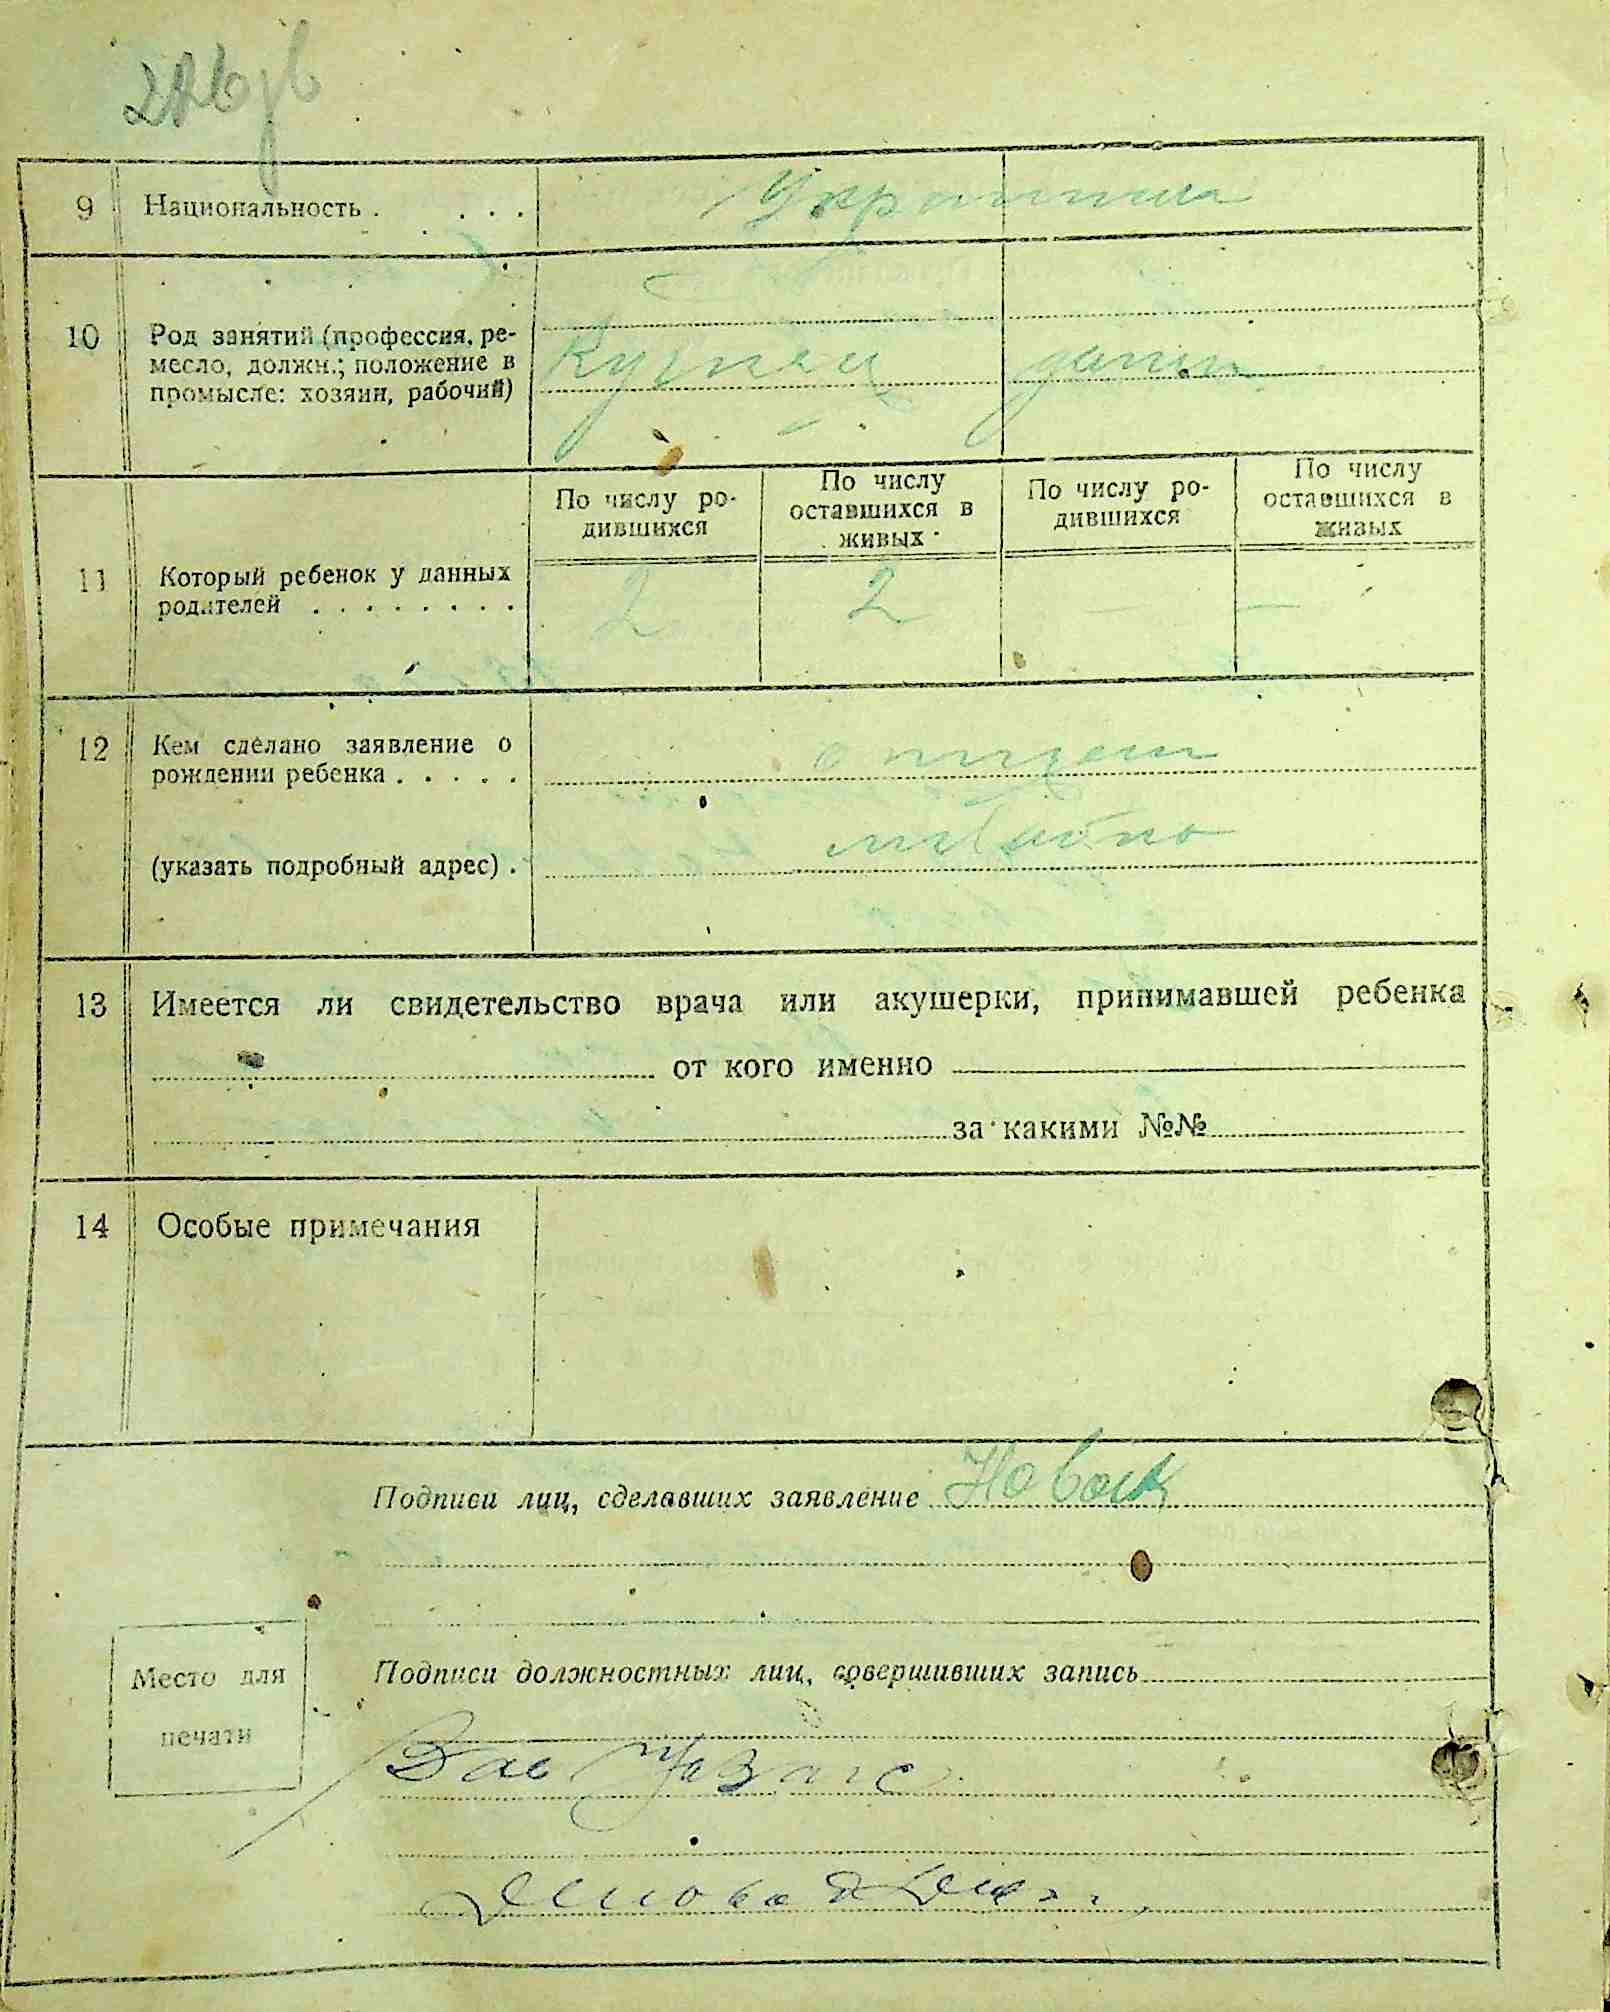 9 Национальность . . . .
10 Род занятий (профессия, ре-
месло, должн.; положение в
промысле: хозяин, рабочий)
Кузнец
По числу ро-
дившихся
По числу
оставшихся в
живых
По числу ро-
дившихся
По числу
оставшихся в
живых
11 Который ребенок у данных
родителей . . . . . . . .
2 2 — —
12 Кем сделано заявление о
рождении ребенка . . . . .
отцем
(указать подробный адрес) .
13 Имеется ли свидетельство врача или акушерки, принимавшей ребенка
от кого именно
за какими №№
14 Особые примечания
Подписи лиц, сделавших заявление Новак
Место для
печати
Подписи должностных лиц, совершивших запись
Зав